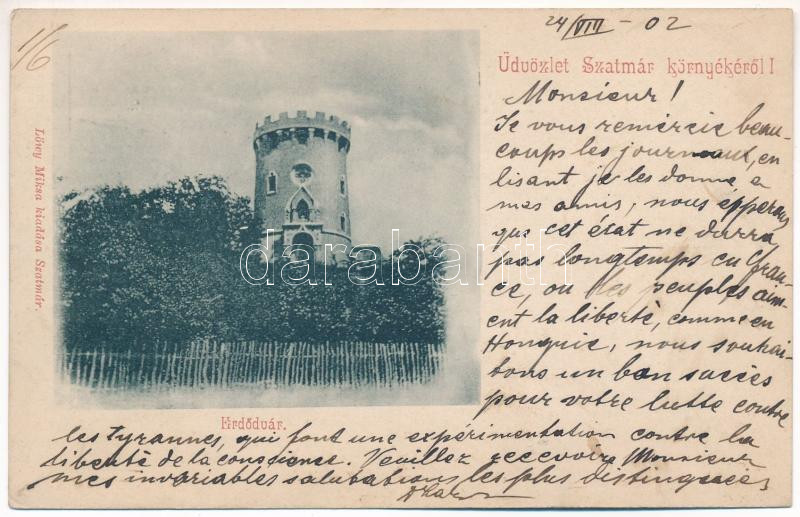 1/6
24/VIII - 02
Üdvözlet Szatmár környékéről!
Monsieur!
Je vous remércie beau-
coups les journeaux, en
lisant je les donne a
mes amis, nous épperons
que cet état ne durra
pas longtemps en Fran-
ce, ou les peuples aim-
ent la liberté, comme en
Hongrie, nous souhai-
tons un bon succés
pour votre lutte contre
les tyrannes, qui font une expérimentation contre la
liberté de la conscience. Veuillez recevoire Monsieur
mes invariables salutations les plus distinguées
Erdődvár.
Lövy Miksa kiadása Szatmár.
darabanth